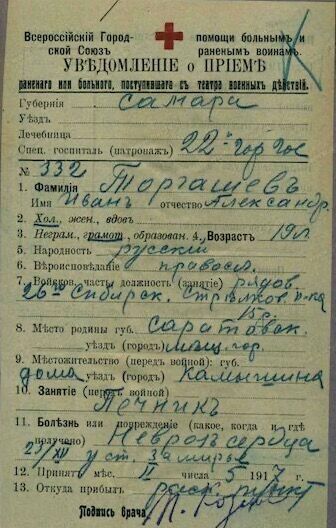 Всероссійскій Город- помощи больнымъ и
ской Союзъ раненымъ воинамъ.
УВѢДОМЛЕНІЕ о ПРІЕМѢ
раненаго или больного, поступившаго съ театра военныхъ дѣйствій.
Губернія Самара
Уѣздъ
Лечебница
Спец. госпиталь (патронажъ) 22й гор гос
№ 332
1. Фамилія Торгашевъ
Имя Иванъ отчество Александр.
2. Хол., жен., вдов.
3. Неграм., грамот., образован. 4. Возрастъ 19 л
5. Народность русскій
6. Вѣроисповѣданіе правосл.
7. Войсков. часть, должность (занятіе) рядов.
26й Сибирск. Стрѣлков. п-ка
15 р.
8. Мѣсто родины губ. саратовск.
уѣздъ (городъ)
9. Мѣстожительство (передъ войной): губ.
дома уѣздъ (городъ) Камышина
10. Занятіе (передъ войной)
Печникъ
11. Болѣзнь или поврежденіе (какое, когда и гдѣ
получено) Неврозъ сердца
23/XII у ст. Замирье
12. Принятъ мѣс. II числа 5 1917 г.
13. Откуда прибылъ расп. пункт
Подпись врача